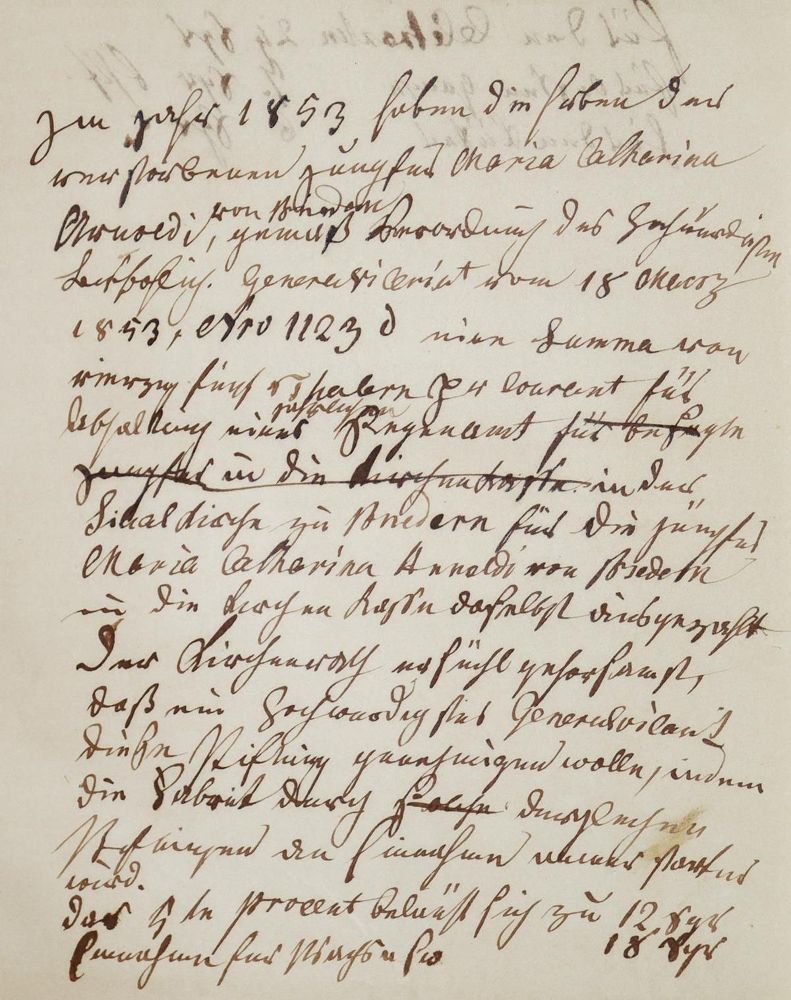 Im Jahr 1853 haben die Erben der
verstorbenen Jungfer Maria Catharina
von Briedern
Arnoldi, gemäß Verordnung des Hochwürdigsten
Bischöflich. Generalvicariat vom 18 Maerz
1853, Nro 1123 d eine Summa von
vierzig fünf Thalern pr Courant für
jährlichen
Abhaltung eines Segenamt für besagte
Jungfer in die Kirchenkasse in der
Filialkirche zu Briedern für die Jungfer
Maria Catharina Arnoldi von Briedern
in die Kirchen Kasse daselbst ausgezahlt
Der Kirchenrath ersucht gehorsamst,
daß ein Hochwürdigstes Generalvicariat
diese Stiftung genehmigen wolle, indem
die Fabrik durch solche dergleichen
Stiftungen an Einnahme immer stärker
wird.
das 5 te Procent beläuft sich zu 12 Sgr
Einnahme für Wachs 18 Sgr